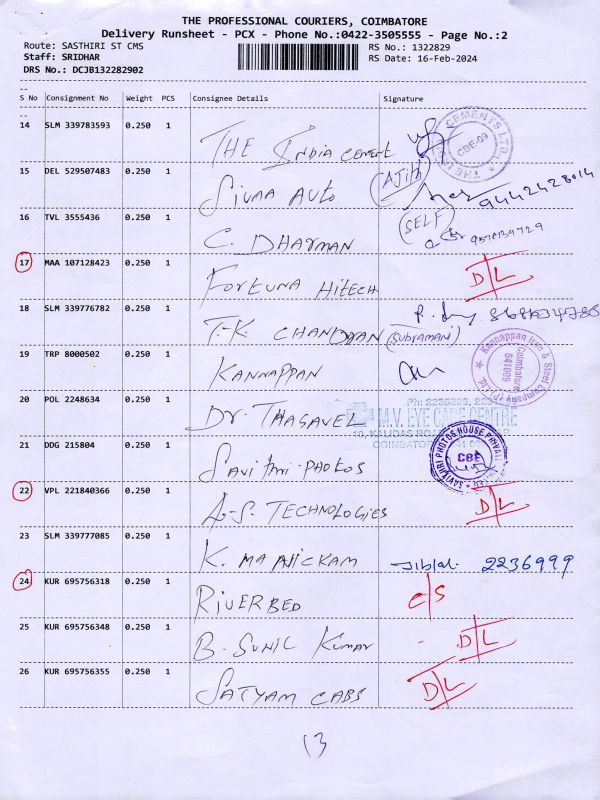 THE PROFESSIONAL COURIERS, COIMBATORE
Delivery Runsheet - PCX - Phone No.:0422-3505555 - Page No.:2
Route: SASTHIRI ST CMS
RS No.: 1322829
Staff: SRIDHAR
RS Date: 16-Feb-2024
DRS No.: DCJB132282902
S No Consignment No Weight PCS Consignee Details Signature
14 SLM 339783593 0.250 1 THE INDIA CEMENT
CEMENTS LTD. CBE-09 THE
15 DEL 529507483 0.250 1 SIVAA AUTO (AJITH) 9442428014
16 TVL 3555436 0.250 1 C. DHARMAN (SELF)
17 MAA 107128423 0.250 1 FORTUNA HITECH D/L
18 SLM 339776782 0.250 1 T.K. CHANDRAN (SUBRAMANI)
19 TRP 8000502 0.250 1 KANNAPPAN
Kannappan Iron & Steel Company (P) Ltd. Coimbatore 641009
20 POL 2248634 0.250 1 Dr. THASAVEL
M.V. EYE CARE CENTRE
10, KALIDAS ROAD
COIMBATORE
21 DDG 215804 0.250 1 SAVITHRI PHOTOS
SAVITHRI PHOTOS HOUSE PRIVATE CBE
22 VPL 221840366 0.250 1 A.S. TECHNOLOGIES D/L
23 SLM 339777085 0.250 1 K. MANICKAM 2236999
24 KUR 695756318 0.250 1 RIVERBED C/S
25 KUR 695756348 0.250 1 B. SUNIL KUMAR D/L
26 KUR 695756355 0.250 1 SATYAM CABS D/L
13